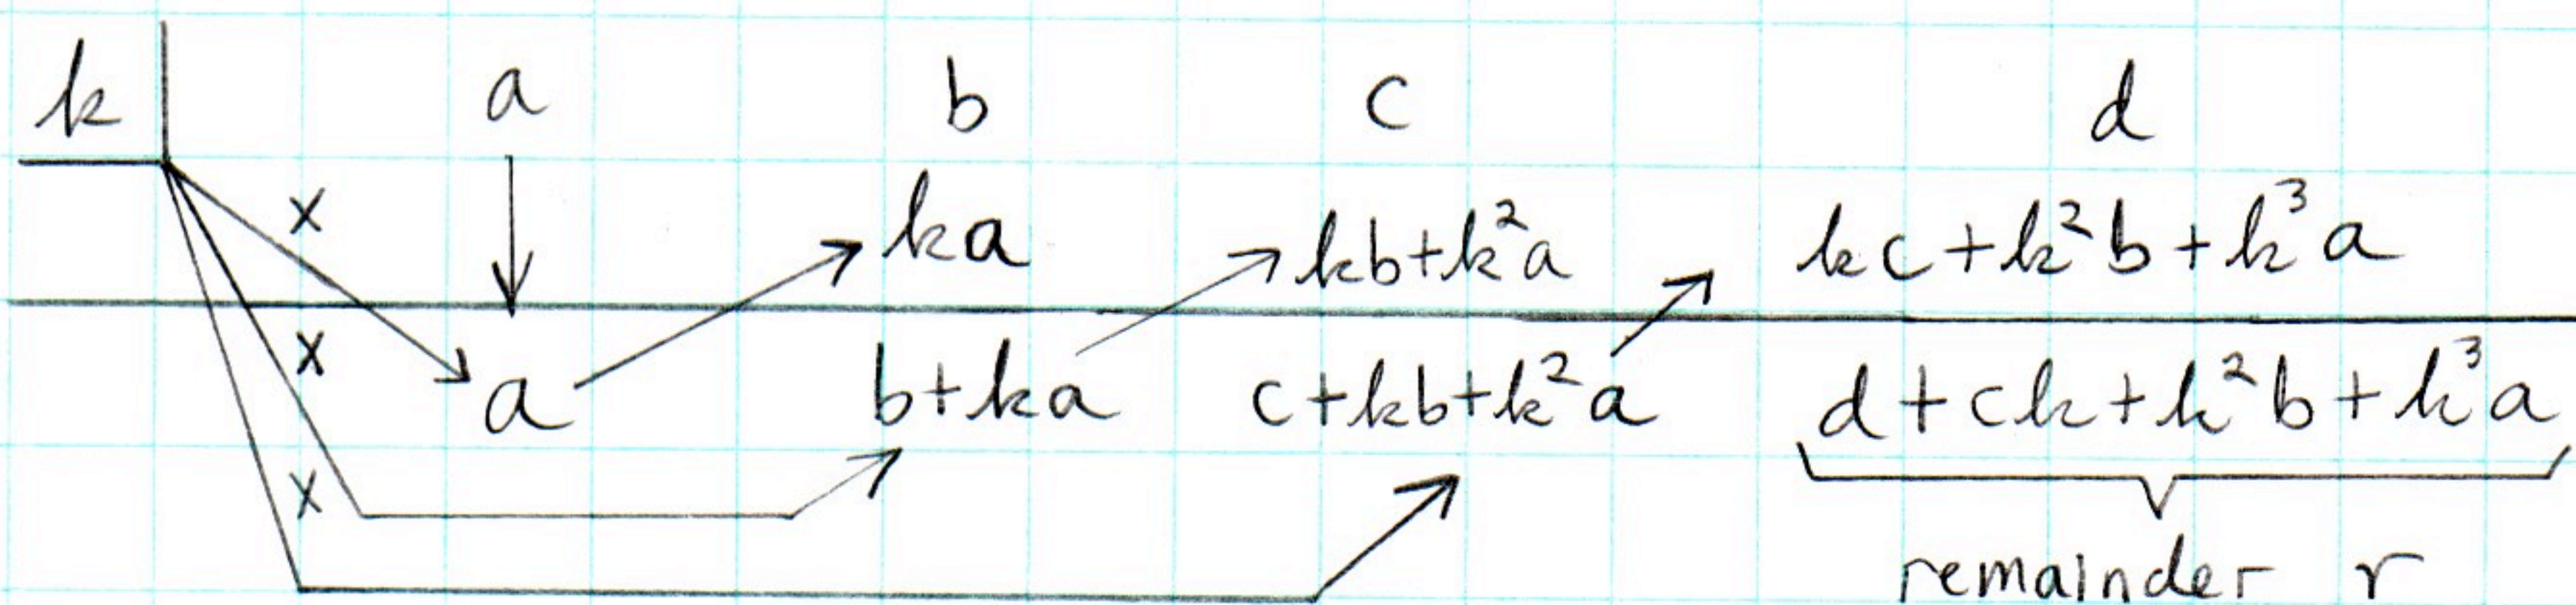 k a b c d
x ka kb+k²a kc+k²b+k³a
x a b+ka c+kb+k²a d+ck+k²b+k³a
x
remainder r